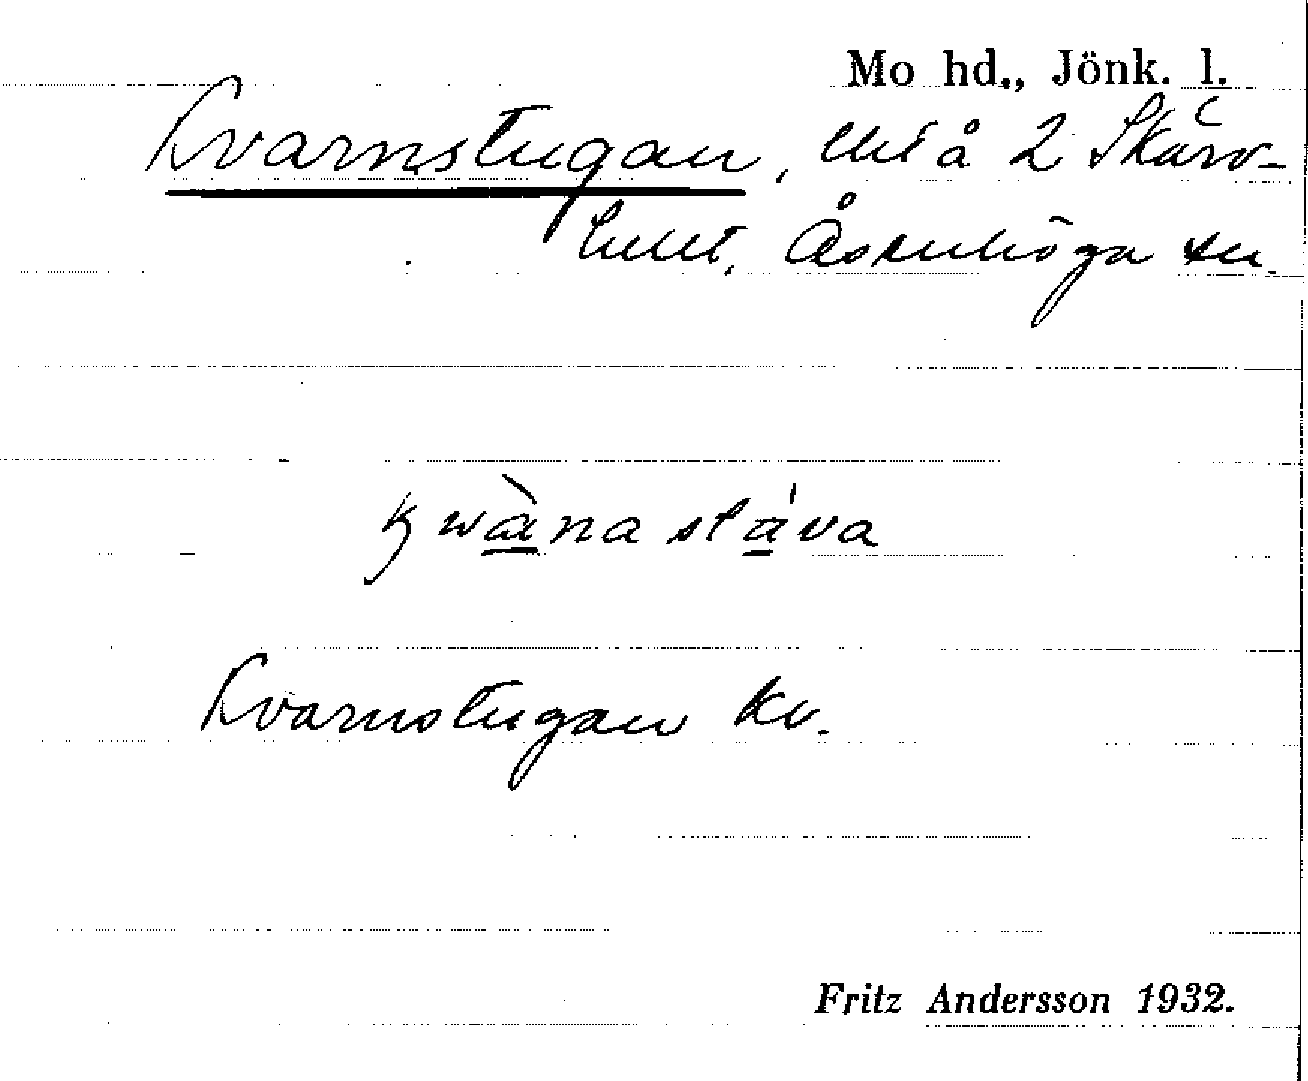 Mo hd., Jönk. l.
Kvarnstugan, lht å 2 Skärv-
hult, Åsenhöga sn.
kwàna stáva
Kvarnstugan kv.
Fritz Andersson 1932.